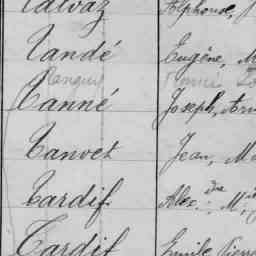 Talvaz Alphonse,
Tandé Eugène, M
Tanguy
Tanné Joseph, Arm
Tanvet Jean, Ma
Tardif Alex. dre M
Tardif Emile Pierr